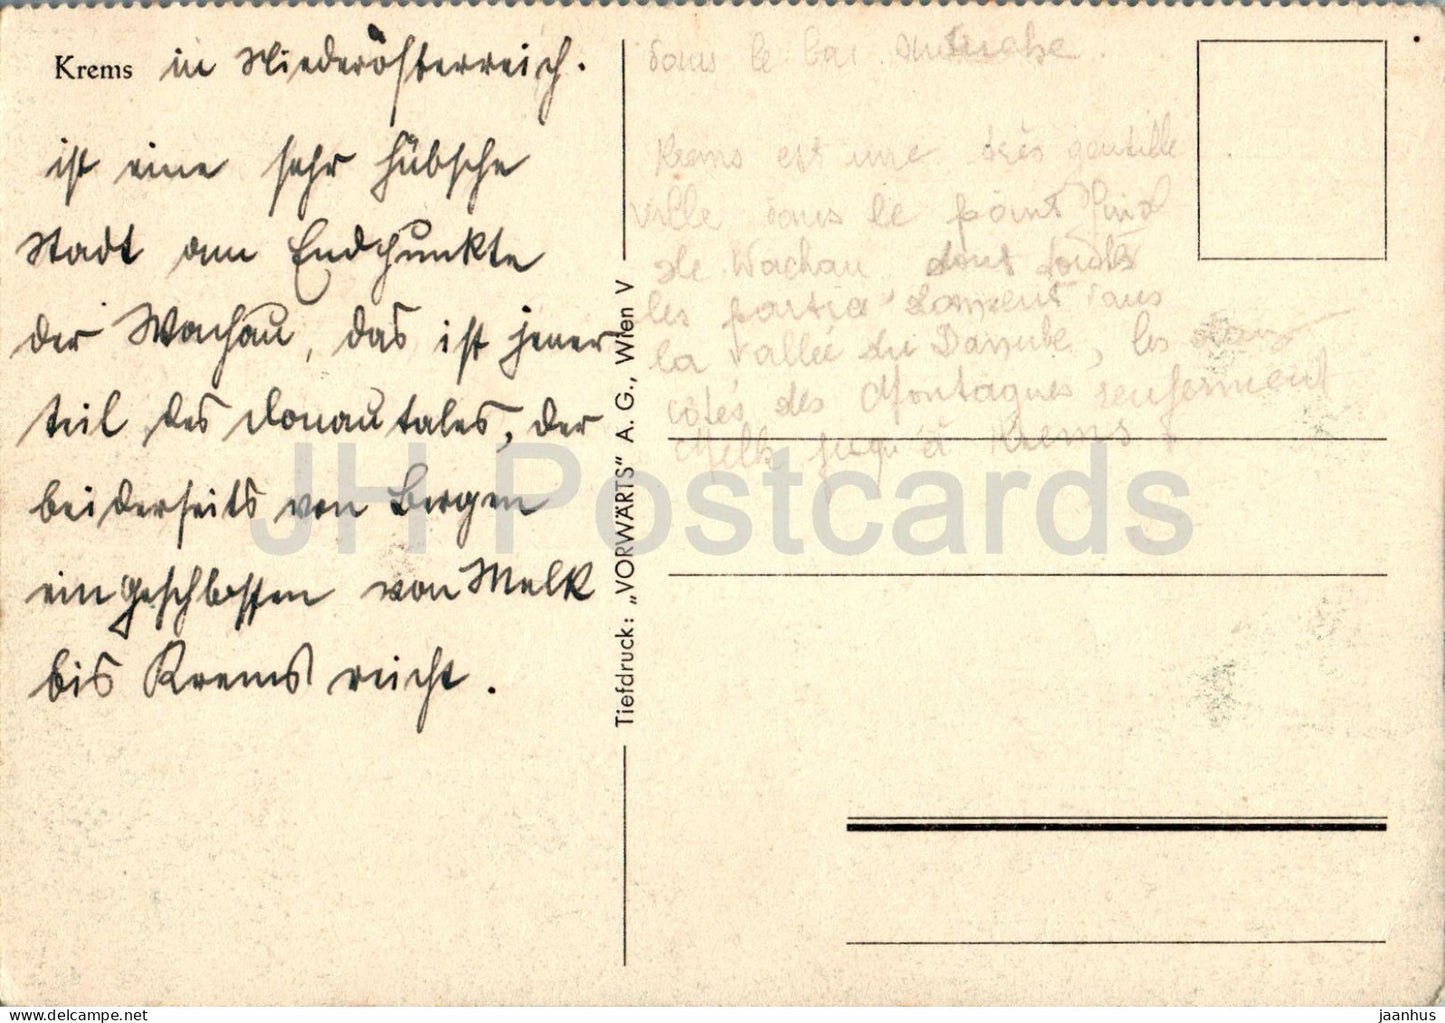 Krems in Niederösterreich.
ist eine sehr hübsche
Stadt am Endpunkte
der Wachau, das ist jener
teil des Donautales, der
beiderseits von Bergen
eingeschlossen von Melk
bis Krems reicht.
Tiefdruck: „VORWÄRTS" A. G., Wien V
dans le bas
Krems est une très gentille
ville dans le point final
de Wachau, dont toutes
les dans
la vallée du Danube, les
côtés des Montagnes renferment
Melk jusqu'à Krems
JH Postcards
jaanhus